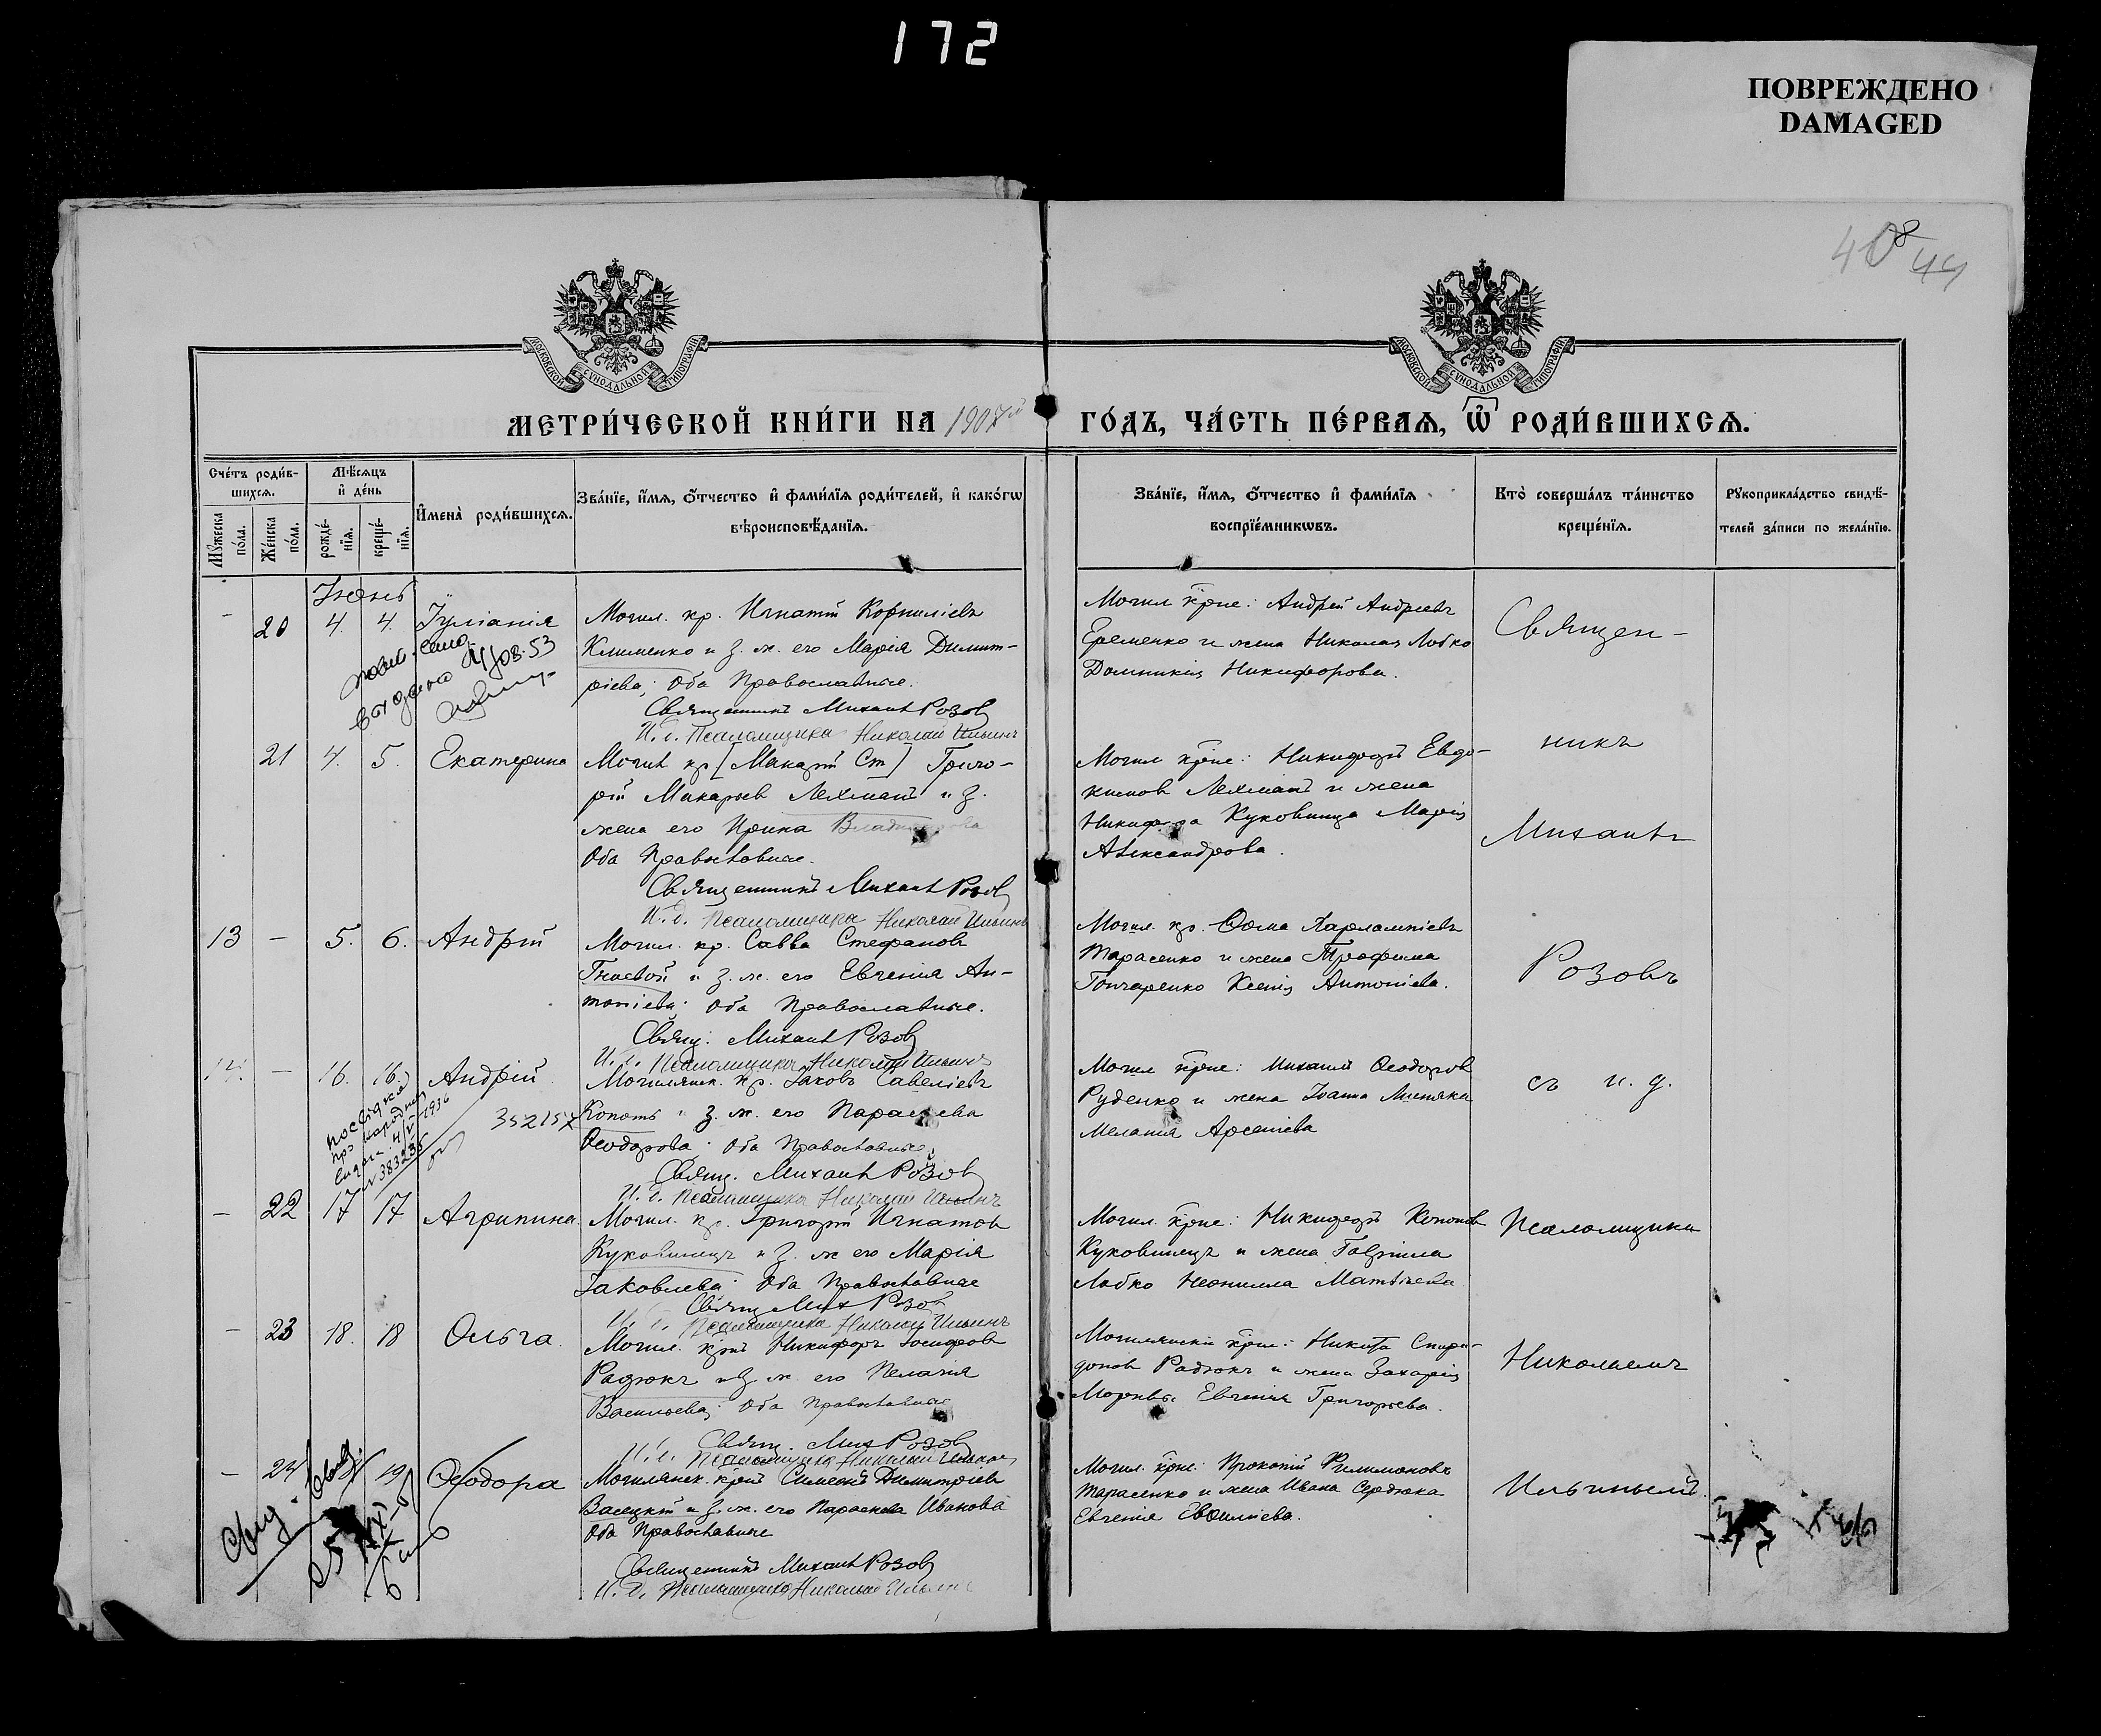 172
ПОВРЕЖДЕНО
DAMAGED
44
МОСКОВСКОЙ СѴНОДАЛЬНОЙ ТИПОГРАФІИ
МОСКОВСКОЙ СѴНОДАЛЬНОЙ ТИПОГРАФІИ
МЕТРИ́ЧЕСКОЙ КНИ́ГИ НА 1907й ГО́ДЪ, ЧА́СТЬ ПЕ́РВАѦ, Ѿ РОДИ́ВШИХСѦ.
Сче́тъ роди́в-
шихсѧ.
Мѣ́сѧцъ
и҆ де́нь
Мꙋ́жеска по́ла.
Же́нска по́ла.
рожде́-
нїѧ.
креще́-
нїѧ.
И҆мена̀ роди́вшихсѧ.
Зва́нїе, и҆́мѧ, ѻ҆́тчество и҆ фами́лїѧ роди́телей, и҆ како́гѡ
вѣроисповѣ́данїѧ.
Зва́нїе, и҆́мѧ, ѻ҆́тчество и҆ фами́лїѧ
воспрїе́мникѡвъ.
Кто̀ соверша́лъ та́инство
креще́нїѧ.
Рꙋкоприкла́дство свидѣ́-
телей за́писи по жела́нїю.
Іюнь
- 20 4. 4. Іуліанія
Могил. кр. Игнатій Корниліевъ
Клименко и з. ж. его Марія Димит-
ріева; оба Православные.
Священникъ Михаилъ Розовъ
И. д. Псаломщика Николай Ильинъ
Могил кр҃не: Андрей Андреевъ
Еременко и жена Николая Лобко
Домникія Никифорова.
Священ-
21 4. 5. Екатерина
Могил кр [Макарій Ст] Григо-
рій Макарьев Лехманъ и з.
жена его Ирина
Оба Православные.
Священникъ Михаилъ Розовъ
И. д. Псаломщика Николай Ильинъ
Могил кр҃не: Никифоръ Евдо-
кимов Лехманъ и жена
Никифора Куковинца Марія
Александрова.
никъ
Михаилъ
13 - 5. 6. Андрій
Могил. кр. Савва Стефановъ
Гнаевой и з. ж. его Евгенія Ан-
тоніева; оба Православные.
Свящ: Михаилъ Розовъ
И. д. Псаломщика Николай Ильинъ
Могил. кр. Ѳома Харлампіевъ
Тарасенко и жена Трофима
Гончаренко Ксенія Антоніева.
Розовъ
14. - 16. 16. Андрій
1936
N 383235
352157
Могилянск. кр. Іаковъ Савеліевъ
Копоть и з. ж. его Параскева
Ѳеодорова; оба Православные
Свящ. Михаилъ Розовъ
И. д. Псаломщика Николай Ильинъ
Могил кр҃не: Михаилъ Ѳеодоров
Руденко и жена Іоанна
Мелания Арсеніева
съ и. д.
- 22 17 17 Агрипина
Могил. кр. Григорій Игнатов
Куковинецъ и з. ж его Марія
Іаковлева; Оба Православные
Свящ Мих Розов
И. д. Псаломщика Николай Ильинъ
Могил. кр҃не: Никифоръ Кононов
Куковинецъ и жена Гавріила
Лобко Неонилла Матѳіева
Псаломщика
- 23 18. 18 Ольга.
Могил. кр҃нъ Никифоръ Іосифов
Радюкъ и з. ж. его Пелагія
Васильева; Оба Православные
Свящ. Мих Розовъ
И. д. Псаломщика Николай Ильинъ
Могилянскіе кр҃не: Никита Спири-
донов Радюкъ и жена Захарія
Евгенія Григорьева.
Николаемъ
- 24 19 Ѳеодора
Могилянск. кр҃нъ Симеонъ Димитріев
Васецкій и з. ж. его Параскева Иванова
Оба Православные
Священникъ Михаилъ Розовъ
И. д. Псаломщика Николай Ильинъ
Могил. кр҃не: Прокопій Филимоновъ
Тарасенко и жена Ивана Сердюка
Евгенія
Ильинымъ.